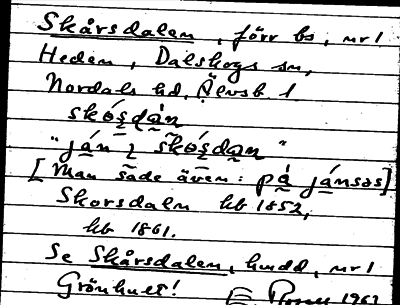 Skårsdalen, förr bs, nr 1
Heden, Dalskogs sn,
Nordals hd, Älvsb. l.
skó̱s̱dàn
"ján ɩ skó̱s̱dan"
[Man sade även: på jánsəs]
Skorsdalen hb 1852,
hb 1861.
Se Skårsdalen, hudd, nr 1
Grönhult!
1961